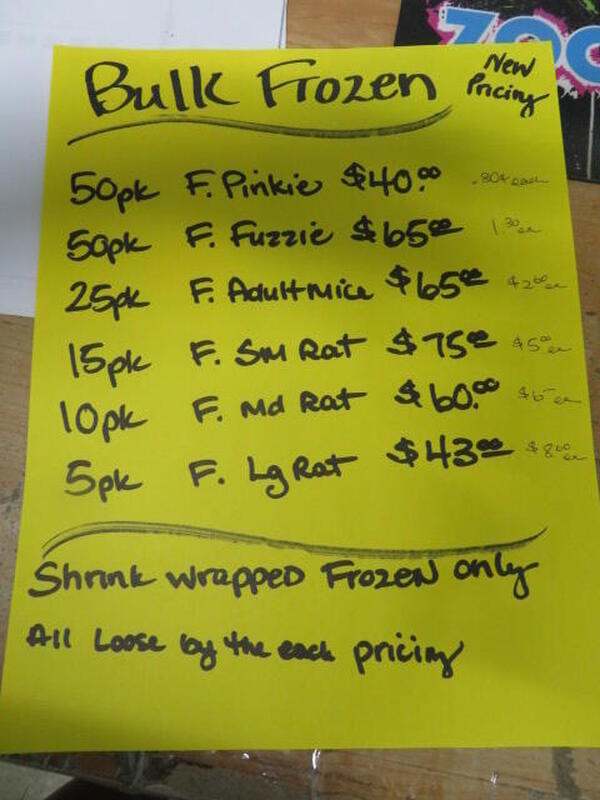 ZOO
New
Pricing
Bulk Frozen
50pk F. Pinkie $40.00 .80¢ each
50pk F. Fuzzie $65.00 1.30 ea
25pk F. Adult Mice $65.00 $2.60 ea
15pk F. Sm Rat $75.00 $5.00 ea
10pk F. Md Rat $60.00 $6- ea
5pk F. Lg Rat $43.00 $8.60 ea
Shrink wrapped Frozen only
All Loose by the each pricing